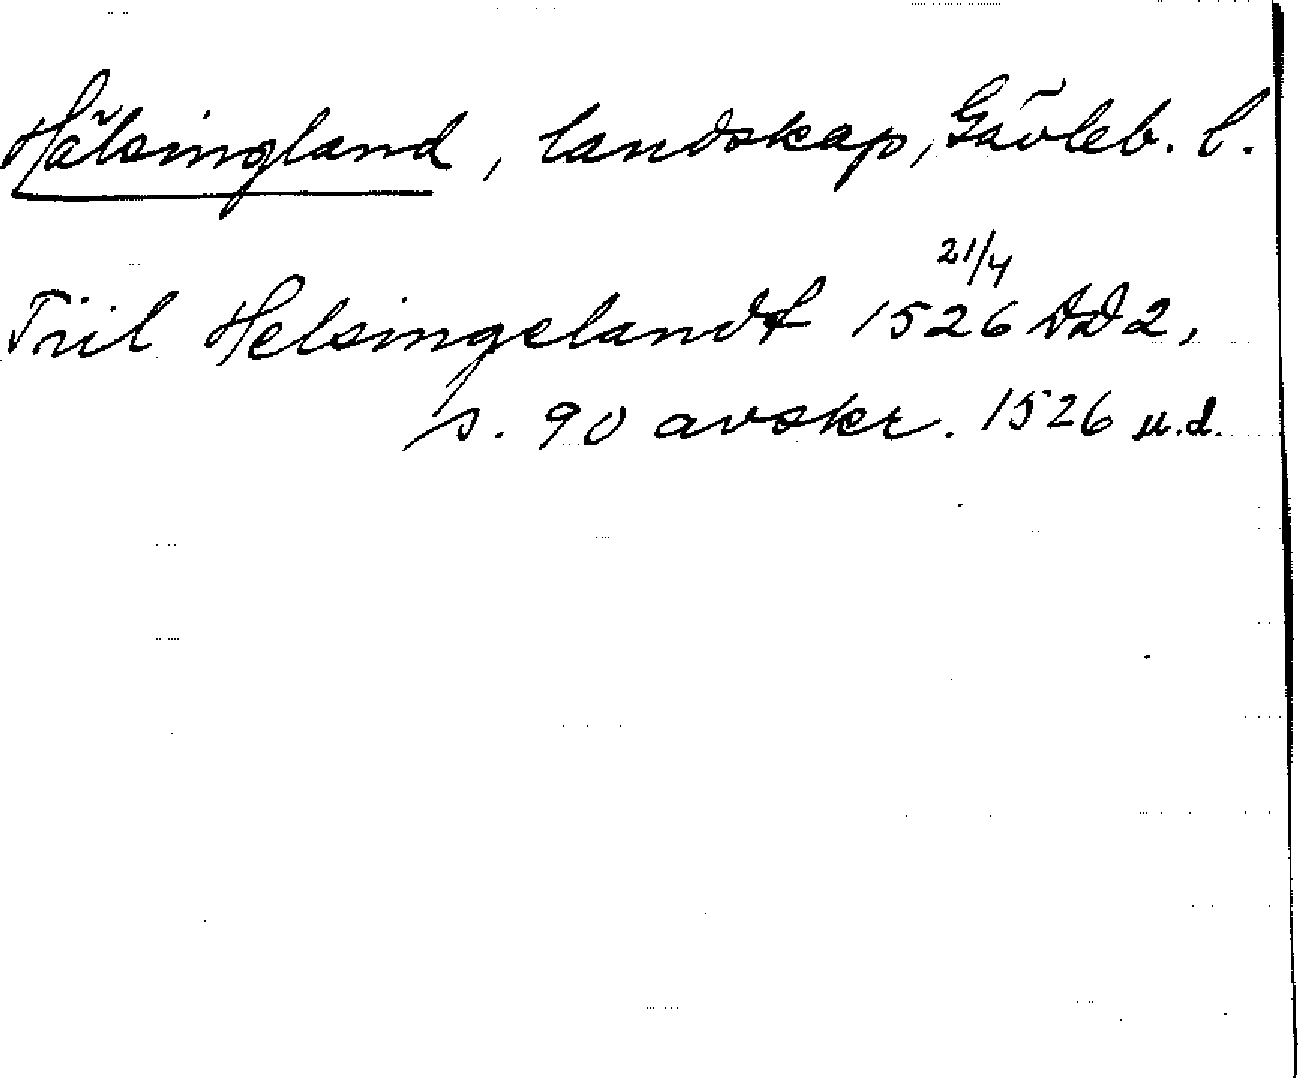 Hälsingland, landskap, Gävleb. l.
Till Helsingelandt 1526 21/4 DD 2,
s. 90 avskr. 1526 u.d.